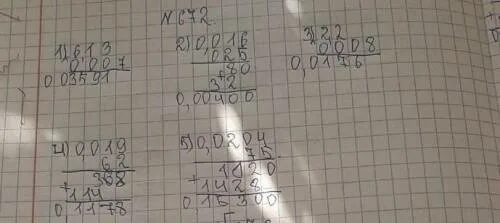 N672.
1) 613
0,007
0,03591
2) 0,016
025
+80
32
0,00400
3) 22
0,008
0,0176
4) 0,019
62
+368
114
0,1178
5) 0,0204
75
+1120
1428
0,15300